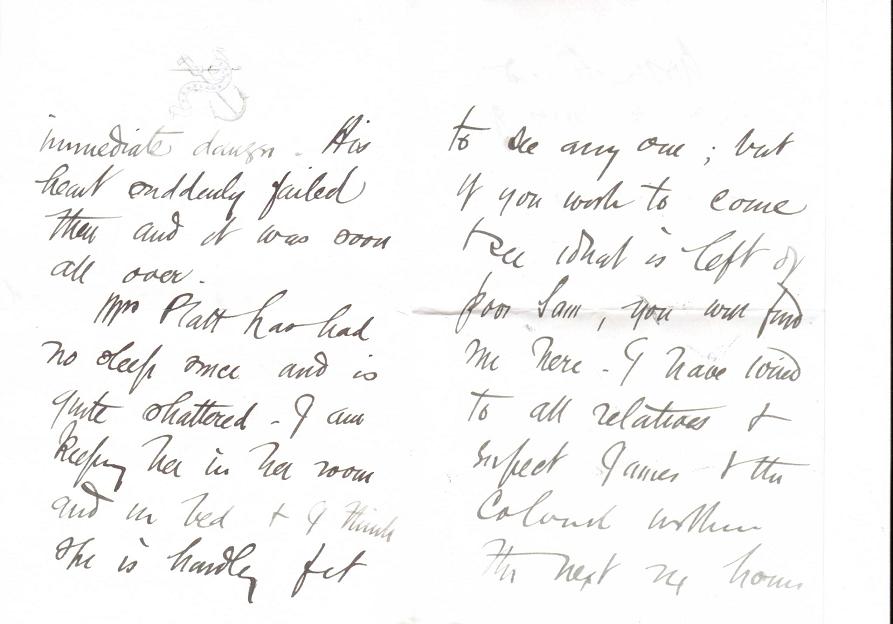 immediate danger. His
heart suddenly failed
then and it was soon
all over.
Mrs Platt has had
no sleep since and is
quite shattered - I am
keeping her in her room
and in bed & I think
she is hardly fit
to see any one ; but
if you wish to come
to see what is left of
poor Sam, you will find
me here - I have wired
to all relatives &
expect James & the
Colonel within
the next hours